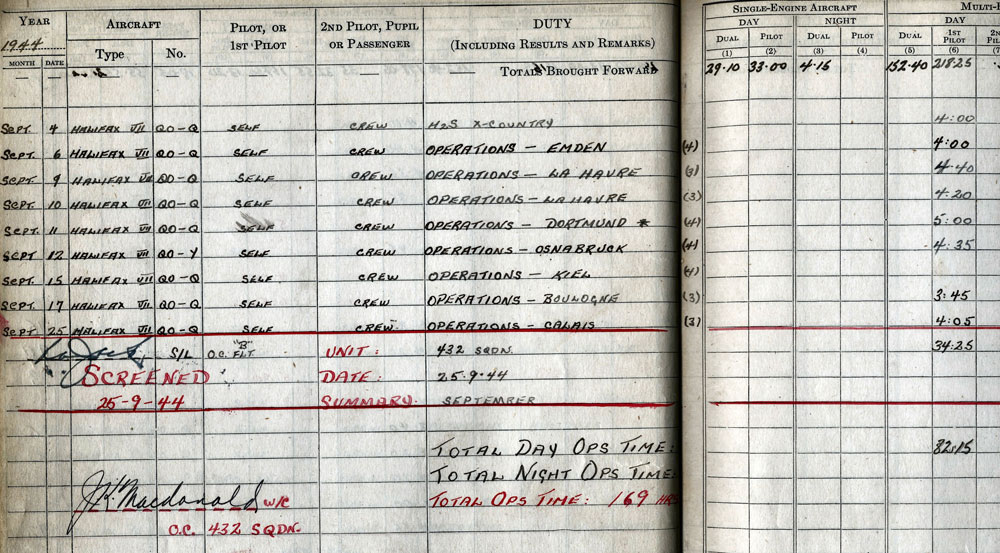 YEAR AIRCRAFT PILOT, OR 1ST PILOT 2ND PILOT, PUPIL OR PASSENGER DUTY (INCLUDING RESULTS AND REMARKS) SINGLE-ENGINE AIRCRAFT MULTI-E
1944 DAY NIGHT DAY
MONTH DATE Type No. DUAL PILOT DUAL PILOT DUAL 1ST PILOT 2ND PIL
(1) (2) (3) (4) (5) (6) (7)
— — — — — — TOTALS BROUGHT FORWARD 29.10 33.00 4.15 152.40 218.25
SEPT 4 HALIFAX VII QO-Q SELF CREW H2S X-COUNTRY 4:00
SEPT. 6 HALIFAX VII QO-Q SELF CREW OPERATIONS – EMDEN (4) 4:00
SEPT. 9 HALIFAX VII QO-Q SELF CREW OPERATIONS – LA HAVRE (3) 4:40
SEPT. 10 HALIFAX VII QO-Q SELF CREW OPERATIONS – LA HAVRE (3) 4:20
SEPT. 11 HALIFAX VII QO-Q SELF CREW OPERATIONS – DORTMUND * (4) 5:00
SEPT 12 HALIFAX VII QO-Y SELF CREW OPERATIONS – OSNABRUCK (4) 4:35
SEPT. 15 HALIFAX VII QO-Q SELF CREW OPERATIONS – KIEL (4)
SEPT. 17 HALIFAX VII QO-Q SELF CREW OPERATIONS – BOULOGNE (3) 3:45
SEPT 25 HALIFAX VII QO-Q SELF CREW OPERATIONS – CALAIS (3) 4:05
S/L O.C. "B" FLT UNIT: 432 SQDN. 34:25
SCREENED DATE: 25.9.44
25-9-44 SUMMARY SEPTEMBER
TOTAL DAY OPS TIME: 82:15
TOTAL NIGHT OPS TIME
J.K. Macdonald W/C TOTAL OPS TIME: 169 HRS
O.C. 432 SQDN.